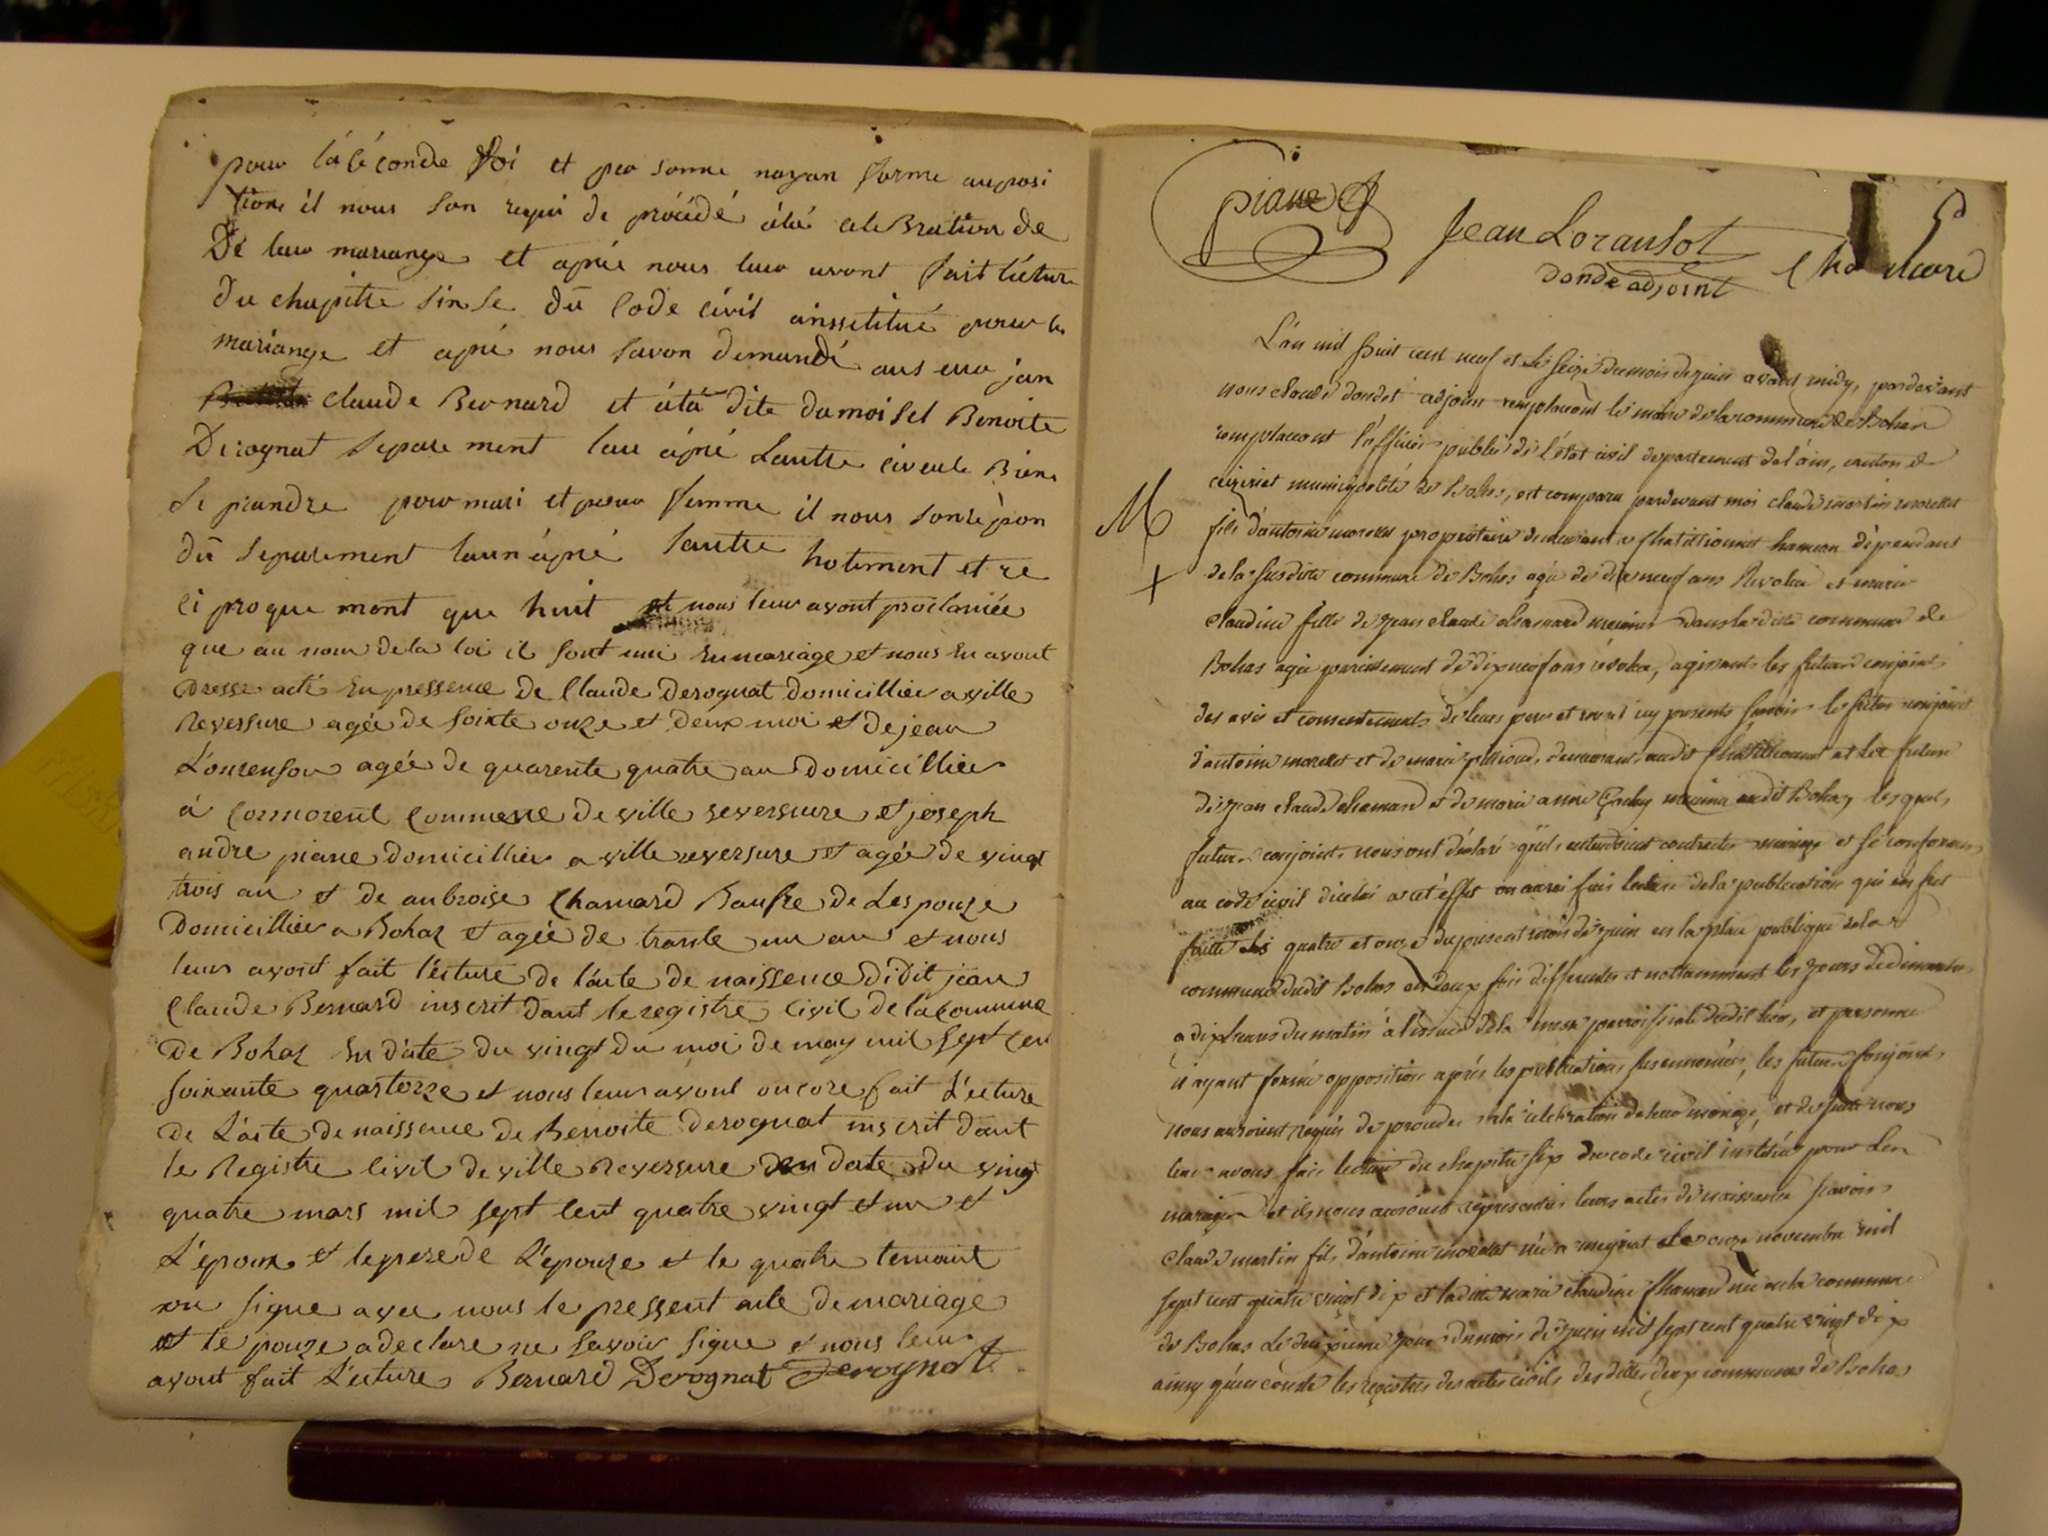 pour la séconde foi et per sonne nayan forme auposi
tion il nous son requi de procédé à la celebration de
De leur mariange et aprée nous leur avont fait lécture
Du chapitre sinse du Code civil inssetitué pour le
mariange et apré nous lavon demandé aus eur jan
claude Bernard et à la dite damoisel Benoite
Derognat separe ment lun apré lautre ci veule Bien
se prandre pour mari et pour femme il nous sonrépon
du separement lun apré lautre hotement et re
ci proque ment que huit et nous leur avont proclamée
que au nom de la loi il sont uni en mariage et nous en avont
dresse acte en pressence de Claude Derognat domicillier a ville
Reversure agée de soixte onze et deux moi et de jean
L'orenson agée de quarente quatre an domicillier
à Cormorent Commene de ville reversure et joseph
andre piane domicillier a ville reversure et agée de vingt
trois an et de anbroise Chanard Baufre de Lespouze
domicillier a Bohaz et agée de trante un an et nous
leur avont fait l'écture de l'aute de naissence didit jean
Claude Bernard inscrit dant le registre Civil de la commune
de Bohaz en date du vingt du moi de may mil sept cen
soixante quartorze et nous leur avont oncore fait L'ecture
de L'acte de naissence de Benoite Derognat inscrit dant
le Registre Civil de ville Reversure en date du vingt
quatre mars mil sept cent quatre vingt et un et
L'epoux et le pere de L'epouze et le quatre temoint
on signe avec nous le pressent acte de mariage
et le pouze a declare ne savoir signe et nous leur
avont fait L'ecture Bernard Derognat Derognat
piane
Jean Loransot
donde adjoint
L'an mil huit cent neuf et le seize du mois de juin avant midy, pardevant
nous claude dondet adjoint remplacant le maire de la commune de Bohas
remplacant l'officier public de l'état civil departement de l'ain, canton de
ceizeriat municipalité de Bohas, est comparu pardevant moi claude martin morellet
M
fils d'antoine morellet propriétaire demeurant a chatillionnet hameau dépendant
+
de la susdite commune de Bohas agé de dix neuf ans Revolu et marie
claudine fille de jean claude chanard dans la dite commune de
Bohas agée pareillement de dix neuf ans révolu, agissants les futurs conjoints
des avis et consentements de leurs pere et mere icy presents savoir le futur conjoint
d'antoine morellet et de marie demeurant audit Chatillionnet et la future
de jean claude chanard et de marie anne audit Bohas, lesquels
futurs conjoints nous ont déclaré qu'ils entendoient contracter mariage et se conformer
au code civil a cet effet on auroi fait lecture de la publication qui en fut
faitte les quatre et onze du present mois de juin en la place publique de la
commune dudit Bohas en deux fois differentes et nottamment les jours de dimanche
a dix heures du matin à l'issue de la messe parroissiale dudit lieu, et personne
n ayant formé opposition aprés les publications susennoncées, les futurs conjoints
nous auroient requis de proceder à la célébration de leur mariage, et de suite nous
leur avons fait lecture du chapitre six du code civil institué pour les
mariages et ils nous auroient représentés leurs actes de naissance savoir
claude martin fils d'antoine morellet né a meyriat le onze novembre mil
sept cent quatre vingt dix et ladite marie claudine Chanard née en la commune
de Bohas Le deuxieme jour du mois de juin mil sept cent quatre vingt dix
ainsy qu'en conste les registres des actes civils des dittes deux communes de Bohas